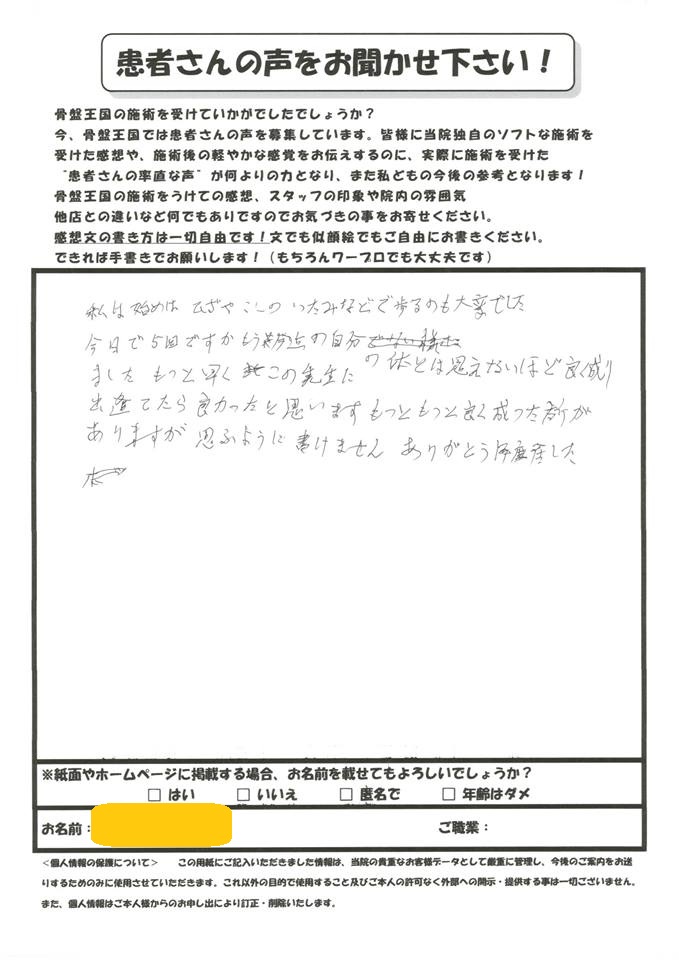 患者さんの声をお聞かせ下さい！
骨盤王国の施術を受けていかがでしたでしょうか？
今、骨盤王国では患者さんの声を募集しています。皆様に当院独自のソフトな施術を
受けた感想や、施術後の軽やかな感覚をお伝えするのに、実際に施術を受けた
"患者さんの率直な声"が何よりの力となり、また私どもの今後の参考となります！
骨盤王国の施術をうけての感想、スタッフの印象や院内の雰囲気
他店との違いなど何でもありですのでお気づきの事をお寄せください。
感想文の書き方は一切自由です！文でも似顔絵でもご自由にお書きください。
できれば手書きでお願いします！（もちろんワープロでも大丈夫です）
私は始めは ひざや こしの いたみなどで歩るのも大変でした
今日で5回ですがもう 自分
の体とは思えないほど良く成り
ました もっと早く この先生に
出逢てたら良かったと思います もっともっと良く成った所が
ありますが 思ふように書けません ありがとう
※紙面やホームページに掲載する場合、お名前を載せてもよろしいでしょうか？
□ はい □ いいえ □ 匿名で □ 年齢はダメ
お名前： ご職業：
＜個人情報の保護について＞ この用紙にご記入いただきました情報は、当院の貴重なお客様データとして厳重に管理し、今後のご案内をお送
りするためのみに使用させていただきます。これ以外の目的で使用すること及びご本人の許可なく外部への開示・提供する事は一切ございません。
また、個人情報はご本人様からのお申し出により訂正・削除いたします。